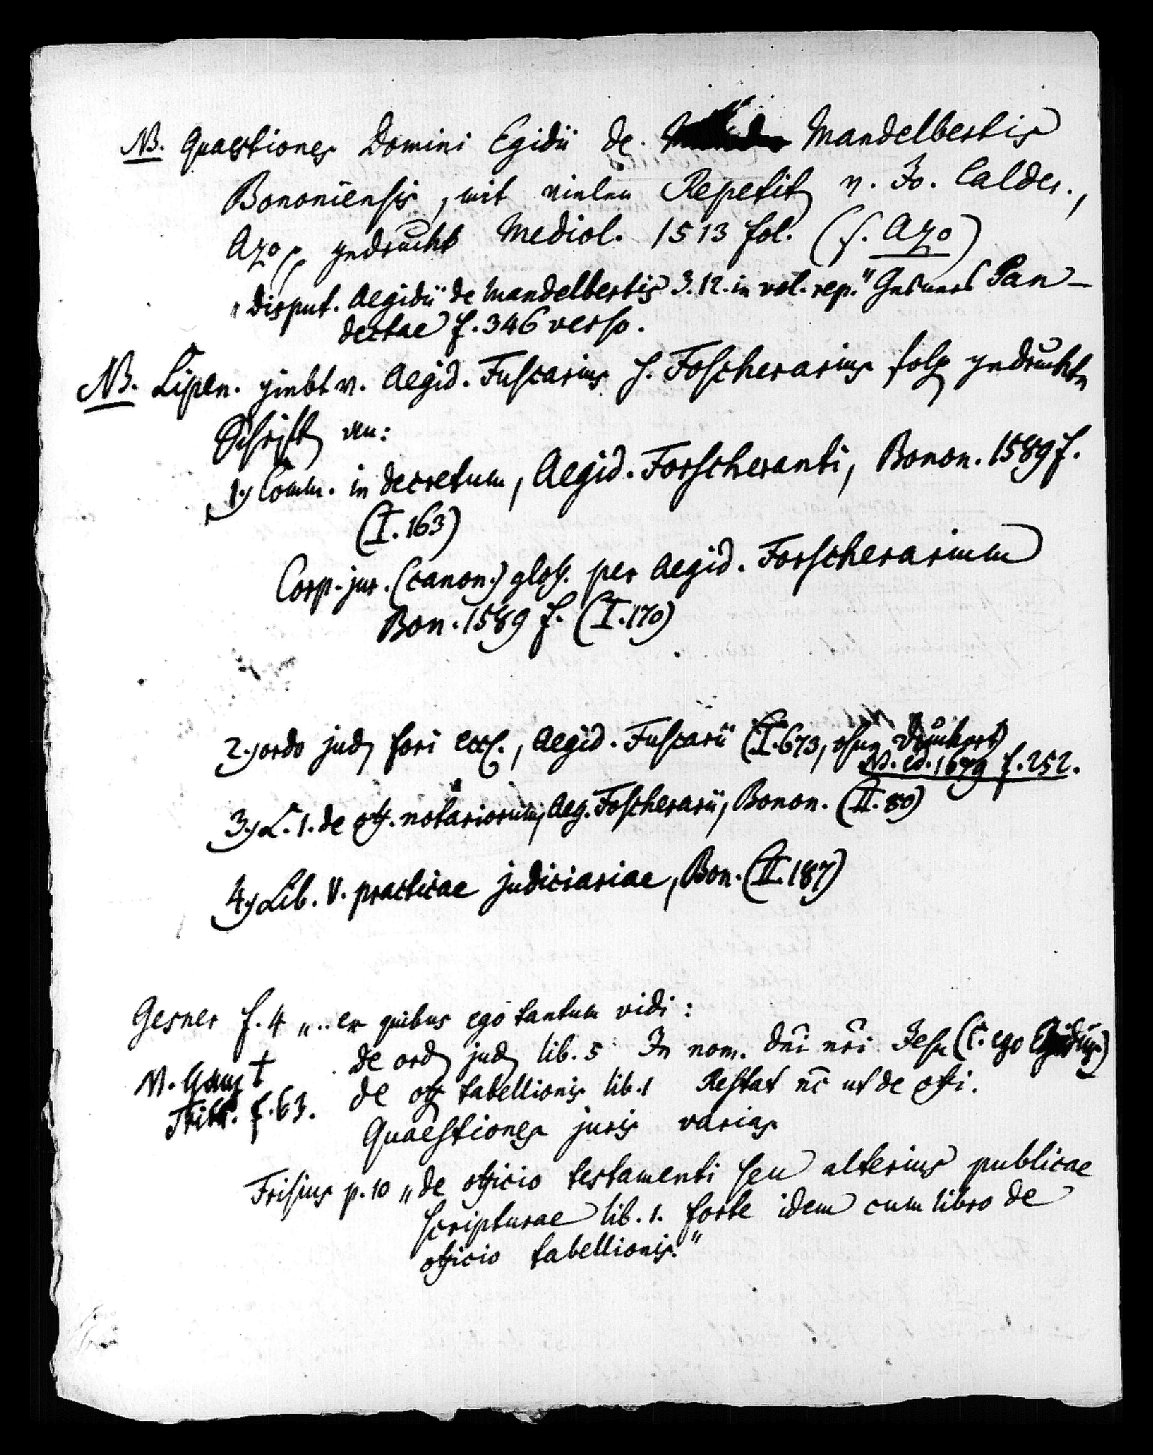 NB. Quaestiones Domini Egidii de Mandelbertis
Bononiensis, mit vielen Repetit v. Jo. Calder.,
Azo gedruckt Mediol. 1513 fol. (s. Azo)
„disput. Aegidii de Mandelbertis 3.12. in vol. rep." Gesners Pan-
dectae f. 346 verso.
NB. Lipen. giebt v. Aegid. Fuscarius s. Foscherarius folg gedruckte
Schrift an:
1.) Comm. in decretum, Aegid. Forscheranti, Bonon. 1589 f.
(I. 163)
Corp. jur. (canon.) gloss. per Aegid. Forscherarium
Bon. 1589 f. (I. 170)
2.) ordo jud fori eccl., Aegid. Fuscarii (I. 673, ohne Druckort)
N. ed. 1679 f. 252.
3.) L. 1. de off. notariorum, Aeg. Foscherarii, Bonon. (II. 80)
4.) Lib. V. practicae judiciariae, Bon. (II. 187)
Gesner f. 4 „.. ex quibus ego tantum vidi:
de ord jud lib. 5 In nom. dni nri Jesu (C. ego Egidius)
de off tabellionis lib. 1 Restat nc ut de offi.
Quaestiones juris varias
Tritt. f. 63.
Frisius p. 10 „de officio testamenti seu alterius publicae
scripturae lib. 1. forte idem cum libro de
officio tabellionis."